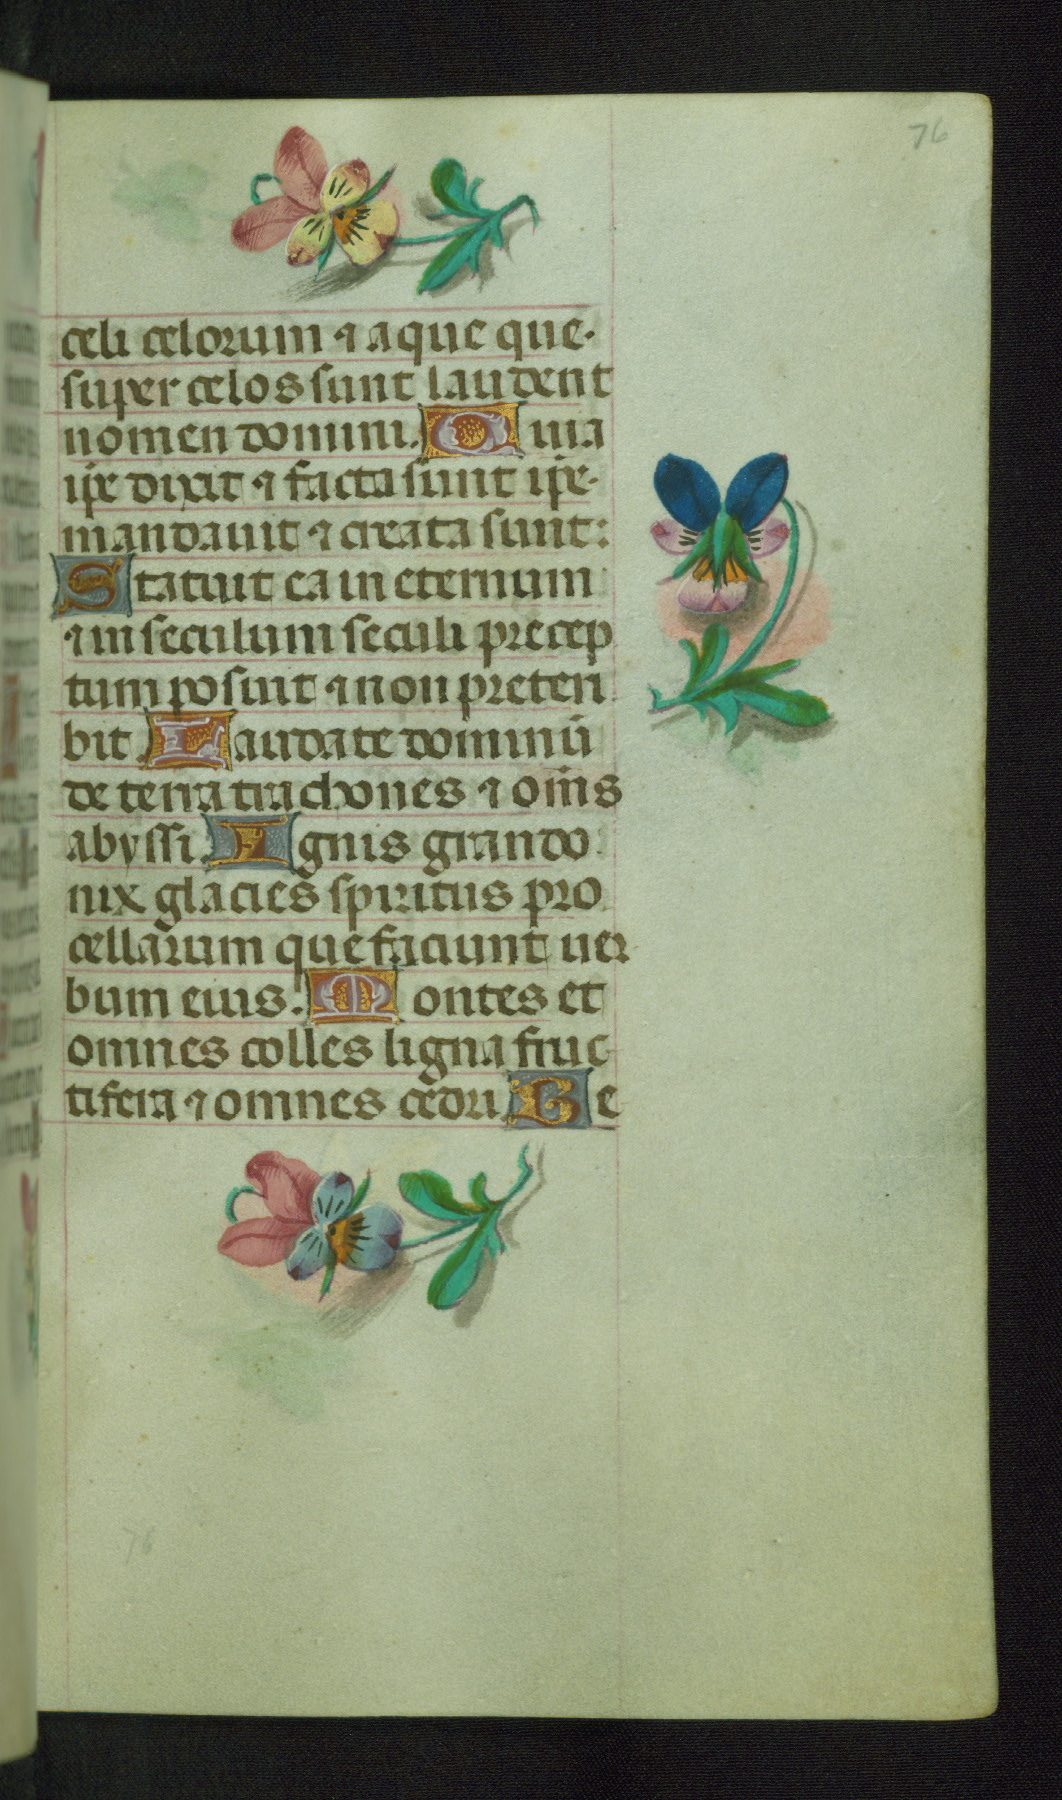 76
celi celorum ⁊ aque que.
super celos sunt laudent
nomen domini. Quia
ip̄e dixit ⁊ facta sunt ip̄e.
mandauit ⁊ creata sunt:
Statuit ea in eternum
⁊ in seculum seculi precep
tum posuit ⁊ non preteri
bit. Laudate dominū
de terra trachones ⁊ om̄s
abyssi. Ignis grando
nix glacies spiritus pro
cellarum que faciunt uer
bum eius. Montes et
omnes colles ligna fruc
tifera ⁊ omnes cedri. Be
76